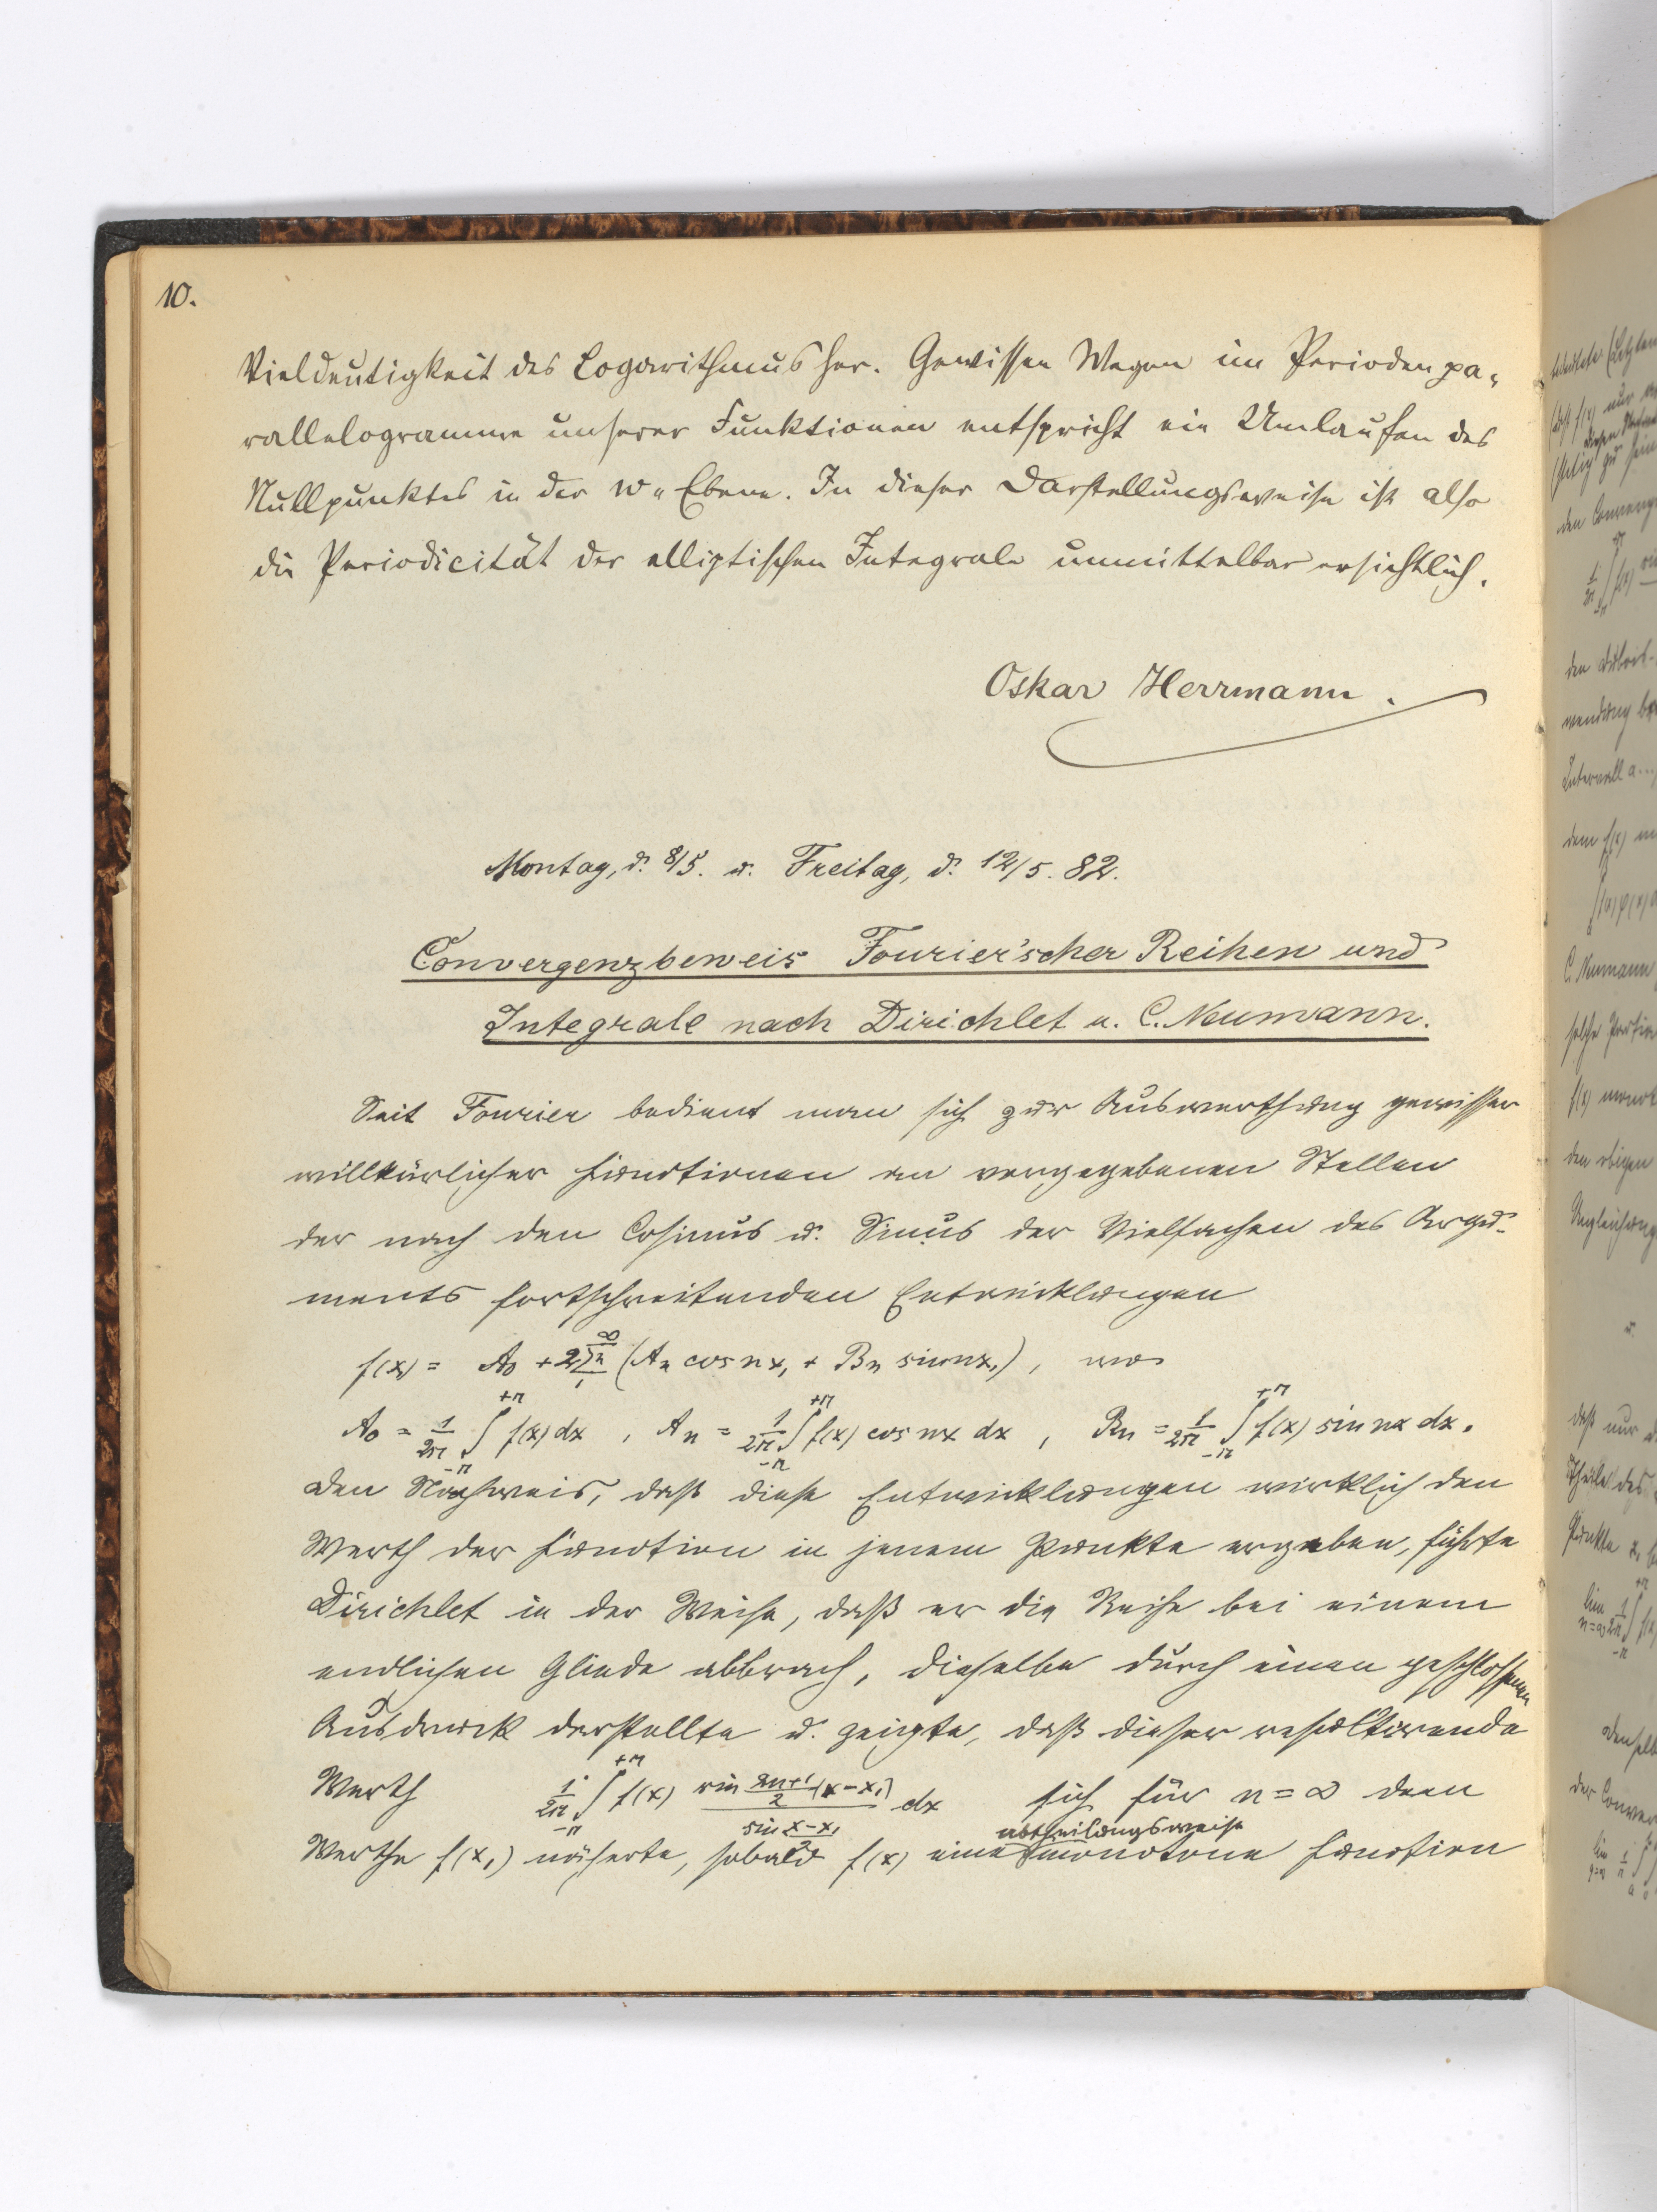 10.
Vieldeutigkeit des Logarithmus her. Gewissen Wegen im Periodenpa-
rallelogramme unserer Funktionen entspricht ein Umlaufen des
Nullpunktes in der w-Ebene. In dieser Darstellungsweise ist also
die Periodicität der elliptischen Integrale unmittelbar ersichtlich.
Oskar Herrmann.
Montag, d. 8/5. u. Freitag, d. 12/5. 82.
Convergenzbeweis Fourier'scher Reihen und
Integrale nach Dirichlet u. C. Neumann.
Seit Fourier bedient man sich zur Auswerthung gewisser
willkürlicher Functionen an vorgegebenen Stellen
der nach den Cosinus u. Sinus der Vielfachen des Argu-
ments fortschreitenden Entwicklungen
f(x₁) = A₀ + 2 ∑ₙ₁^∞ (Aₙ cos nx₁ + Bₙ sin nx₁), wo
A₀ = 1/2π ∫₋π^+π f(x) dx, Aₙ = 1/2π ∫₋π^+π f(x) cos nx dx, Bₙ = 1/2π ∫₋π^+π f(x) sin nx dx.
Den Nachweis, daß diese Entwicklungen wirklich den
Werth der Function in jenem Punkte ergeben, führte
Dirichlet in der Weise, daß er die Reihe bei einem
endlichen Gliede abbrach, dieselbe durch einen geschlossenen
Ausdruck darstellte u. zeigte, daß dieser resultirende
Werth 1/2π ∫₋π^+π f(x) sin (2n+1)/2 (x-x₁) / sin (x-x₁)/2 dx sich für n = ∞ dem
abtheilungsweise
Werthe f(x₁) näherte, sobald f(x) eine monotone Function